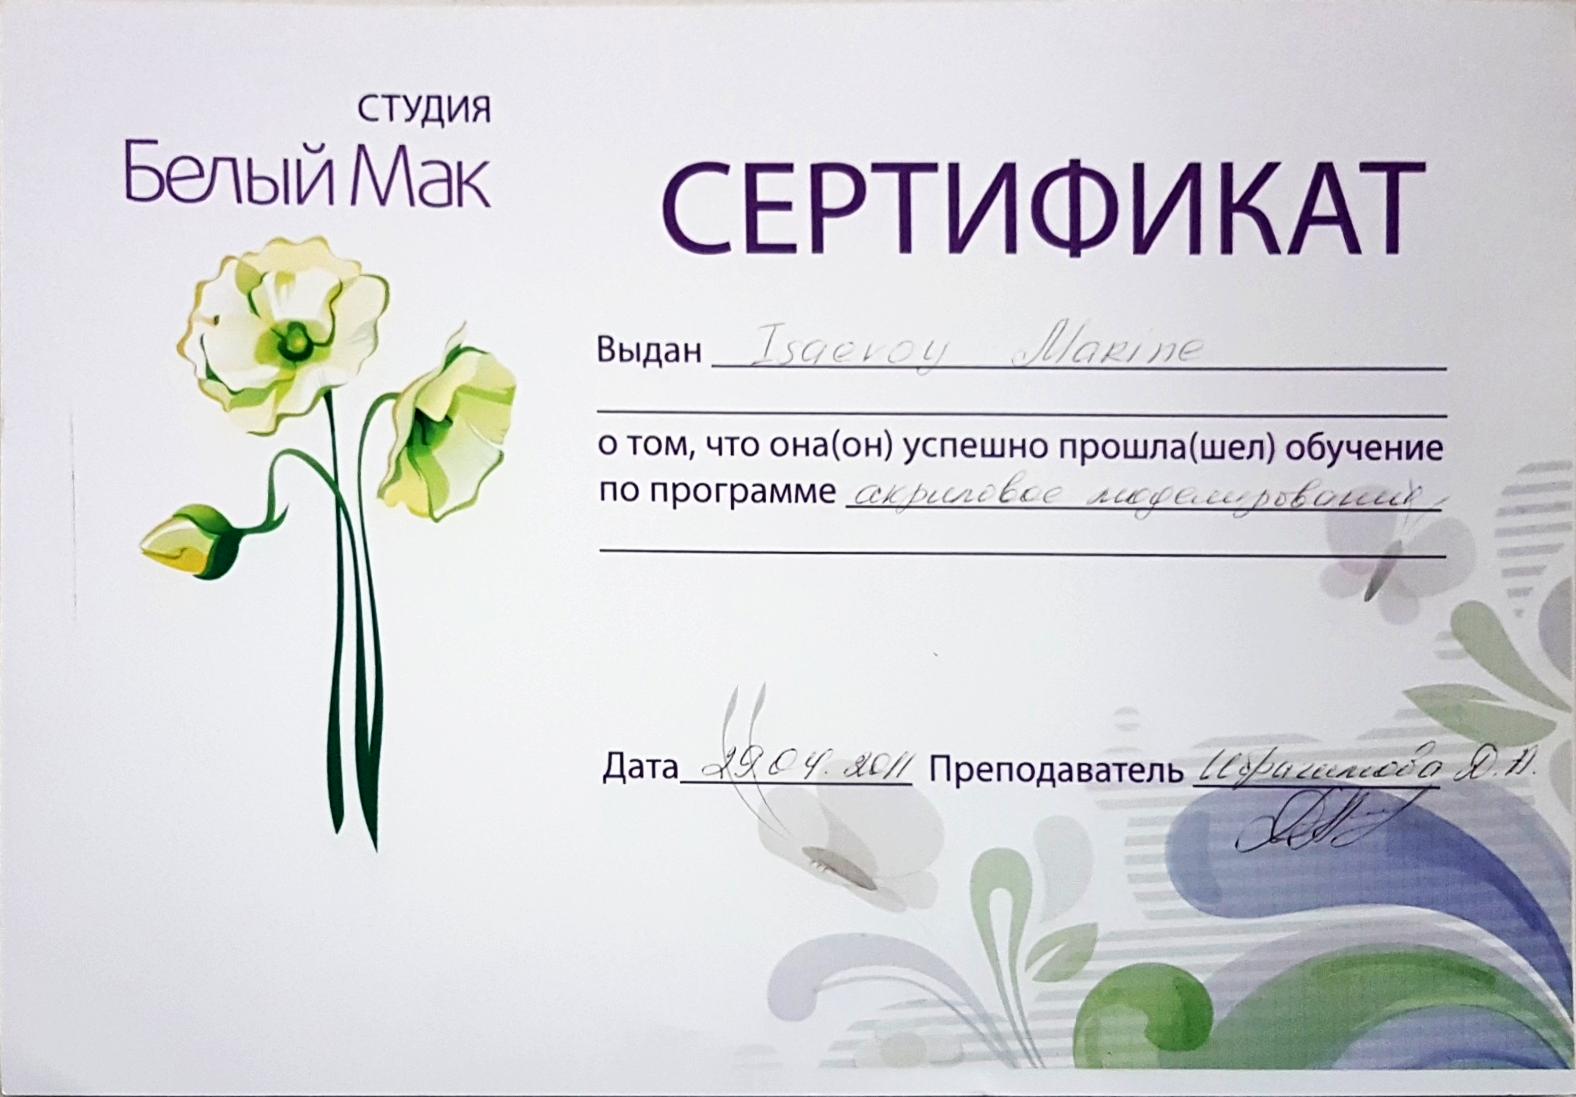 студия
Белый Мак
СЕРТИФИКАТ
Выдан Isaevoy Marine
о том, что она(он) успешно прошла(шел) обучение
по программе акриловое моделирование
Дата 29 04. 2011 Преподаватель Ибрагимова Д.А.